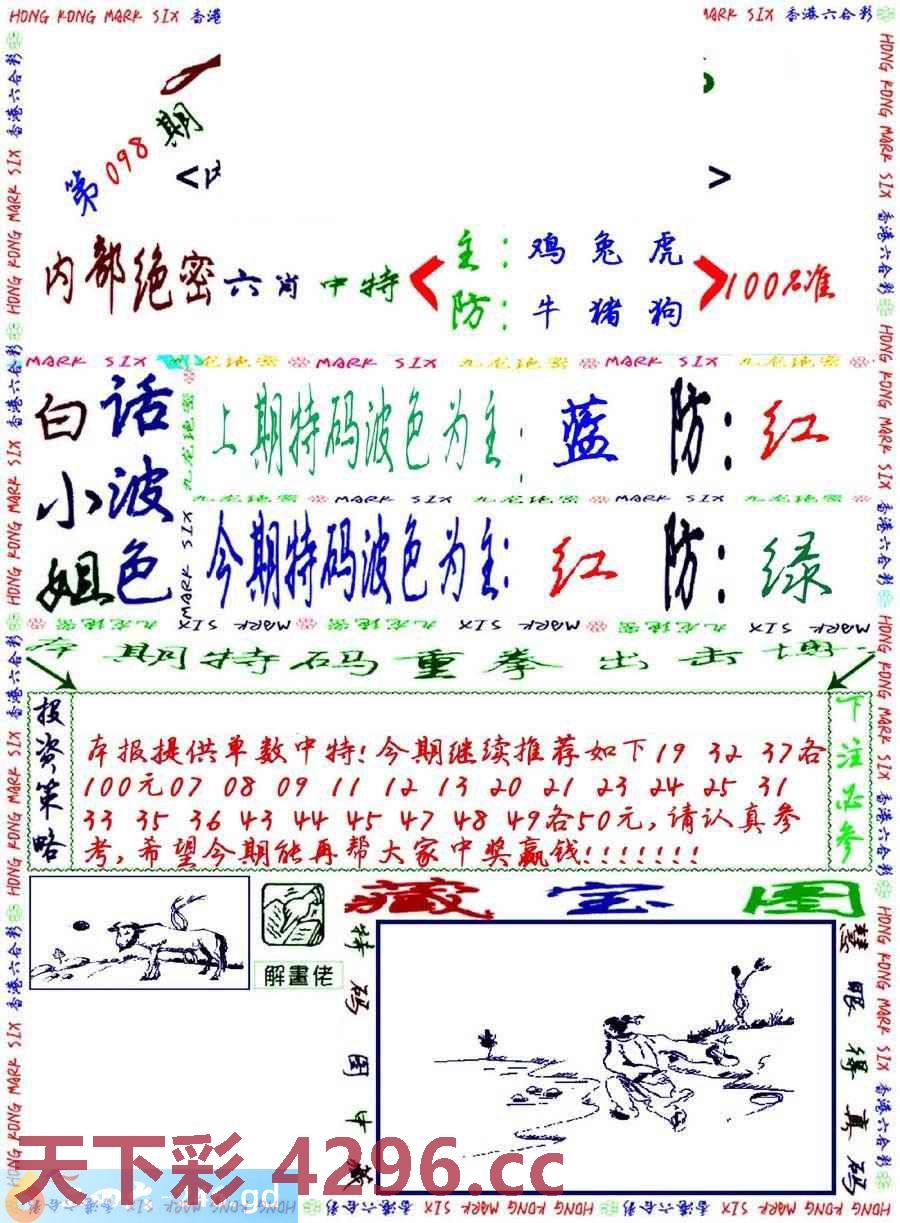 HONG KONG MARK SIX 香港
MARK SIX 香港六合彩
第098期
内部绝密六肖中特
主:鸡兔虎
防:牛猪狗
100%准
MARK SIX 九龙地密 MARK SIX 九龙地密 MARK SIX 九龙地密
白话
小波
姐色
上期特码波色为主: 蓝 防: 红
九龙地密 MARK SIX 九龙地密 MARK SIX 九龙地密
今期特码波色为主: 红 防: 绿
九龙地密 MARK SIX 九龙地密 MARK SIX 九龙地密 MARK SIX
本期特码重拳出击
投资策略
本报提供单数中特!今期继续推荐如下19 32 37各
100元07 08 09 11 12 13 20 21 23 24 25 31
33 35 36 43 44 45 47 48 49各50元,请认真参
考,希望今期能再帮大家中奖赢钱!!!!!!!
下注必参
解畫佬
藏宝图
特码图中藏
慧眼得真码
天下彩 4296.cc
gd
HONG KONG MARK SIX 香港六合彩